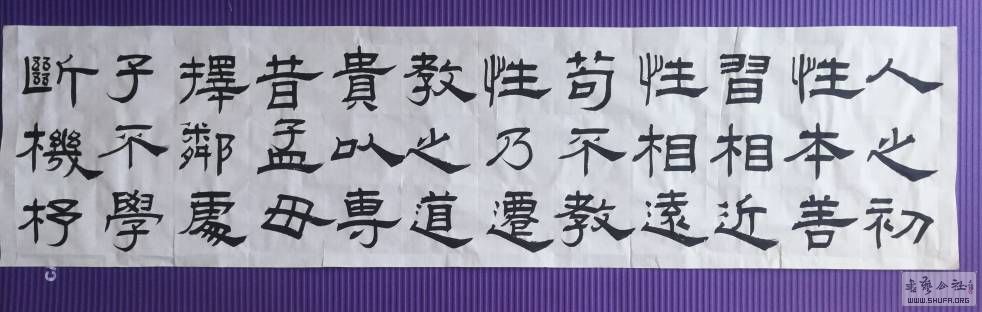 人之初
性本善
習相近
性相遠
苟不教
性乃遷
教之道
貴以專
昔孟母
擇鄰處
子不學
斷機杼
書藝公社
WWW.SHUFA.ORG